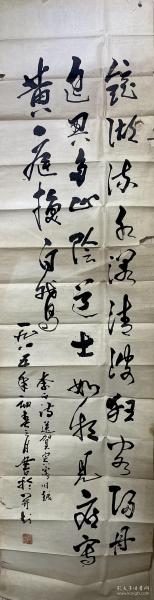 镜湖流水漾清波狂客归舟
逸兴多山阴道士如相见应写
黄庭换白鹅
李白诗送贺宾客归越
一九八五年仲春月书於开封